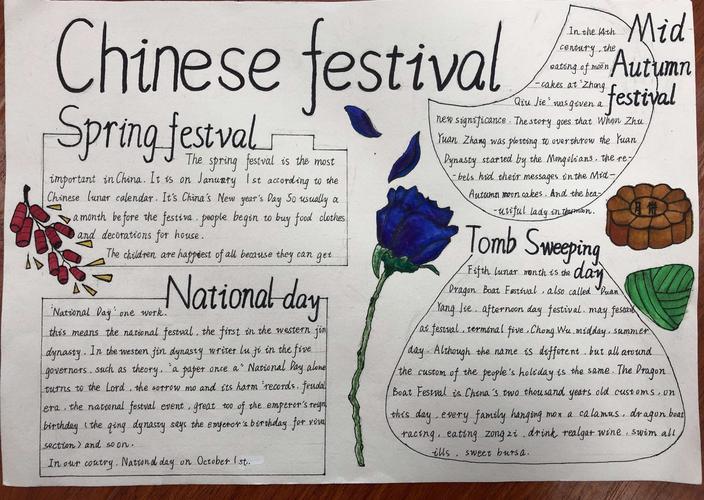 Chinese festival
Spring festval
The spring festval is the most
important in China. It is on January 1st according to the
Chinese lunar calendar. It's China's New year's Day So usually a
a month before the festiva, people begin to buy food clothes
and decorations for house.
The children are happiest of all because they can get
National day
'National Day' one work.
this means the national festival, the first in the western jin
dynasty. In the westen jin dynasty writer lu ji in the five
governors, such as theory, "a paper once a" National Day alone
turns to the Lord, the sorrow mo and its harm "records, feudal
era, the national festival event, great too of the emperor's reign
birthday (the qing dynasty says the emperor's birthday for
section) and so on.
In our coutry, National day on October 1st.
Mid
Autumn
festival
In the 14th
century, the
eating of moon
-cakes at "Zhong
Qiu Jie" was given a
new significance. The story goes that When Zhu
Yuan Zhang was plotting to overthrow the Yuan
Dynasty started by the Mongolians, the re-
-bels hid their messages in the Mid-
Autumn moon cakes. And the bea-
-utiful lady in
月饼
Tomb Sweeping
day
Fifth lunar month is the
Dragon Boat Festival, also called Duan
Yang Jie, afternoon day festival, may
as festival, terminal five, Chong Wu, midday, summer
day. Although the name is different, but all around
the custom of the people's holiday is the same. The Dragon
Boat Festval is China's two thousand years old customs, on
this day, every family hanging mox a calamus, dragon boat
racing, eating zongzi, drink realgar wine, swim all
ills, sweet bursa.